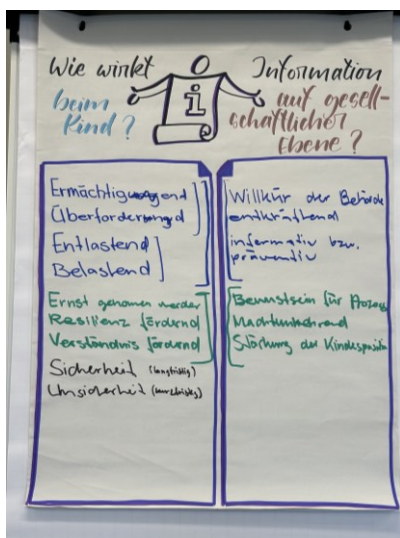 Wie wirkt
Information
i
beim
Kind?
auf gesell-
schaftlicher
Ebene?
Ermächtigend
Überfordernd
Entlastend
Belastend
Ernst genommen werden
Resilienz fördernd
Verständnis fördernd
Sicherheit (langfristig)
Unsicherheit (kurzfristig)
Willkür der Behörde
entkräftend
informativ bzw.
präventiv
Bewusstsein für Prozess
Stärkung der Kindesposition